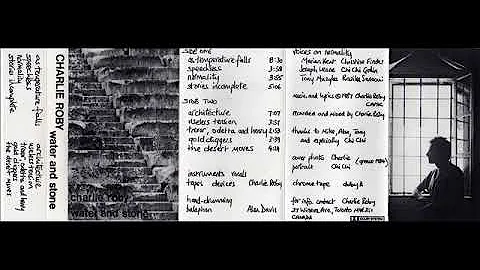 CHARLIE ROBY water and stone
as temperature falls
speechless
normality
stories incomplete
architecture
useless tension
trevor, odetta and henry
gold diggers
the desert moves
charlie roby
water and stone
SIDE ONE
as temperature falls 8:30
speechless 3:58
normality 3:55
stories incomplete 5:06
SIDE TWO
architecture 7:07
useless tension 3:51
trevor, odetta and henry 2:53
gold diggers 2:39
the desert moves 4:24
instruments vocals
tapes devices Charlie Roby
hand-drumming
balaphon Alan Davis
voices on normality
Marian Kent Christine Finder
Joseph Keane Chi Chi
Tony
music and lyrics © 1984 Charlie Roby
recorded and mixed by Charlie Roby
thanks to Mike, Alan, Tony
and especially Chi Chi
cover photo Charlie (greece 1984)
portrait Chi Chi
chrome tape dolby B
for info. contact Charlie Roby
Ave, Toronto
CANADA